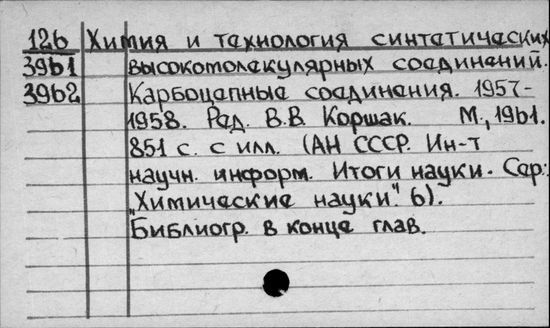 12б Химия и технология синтетических
39б1 высокомолекулярных соединений.
39б2 Карбоцепные соединения. 1957-
1958. Ред. В.В. Коршак. М., 1961.
851 с. с илл. (АН СССР. Ин-т
научн. информ. Итоги науки. Сер.:
„Химические науки". 6).
Библиогр. в конце глав.